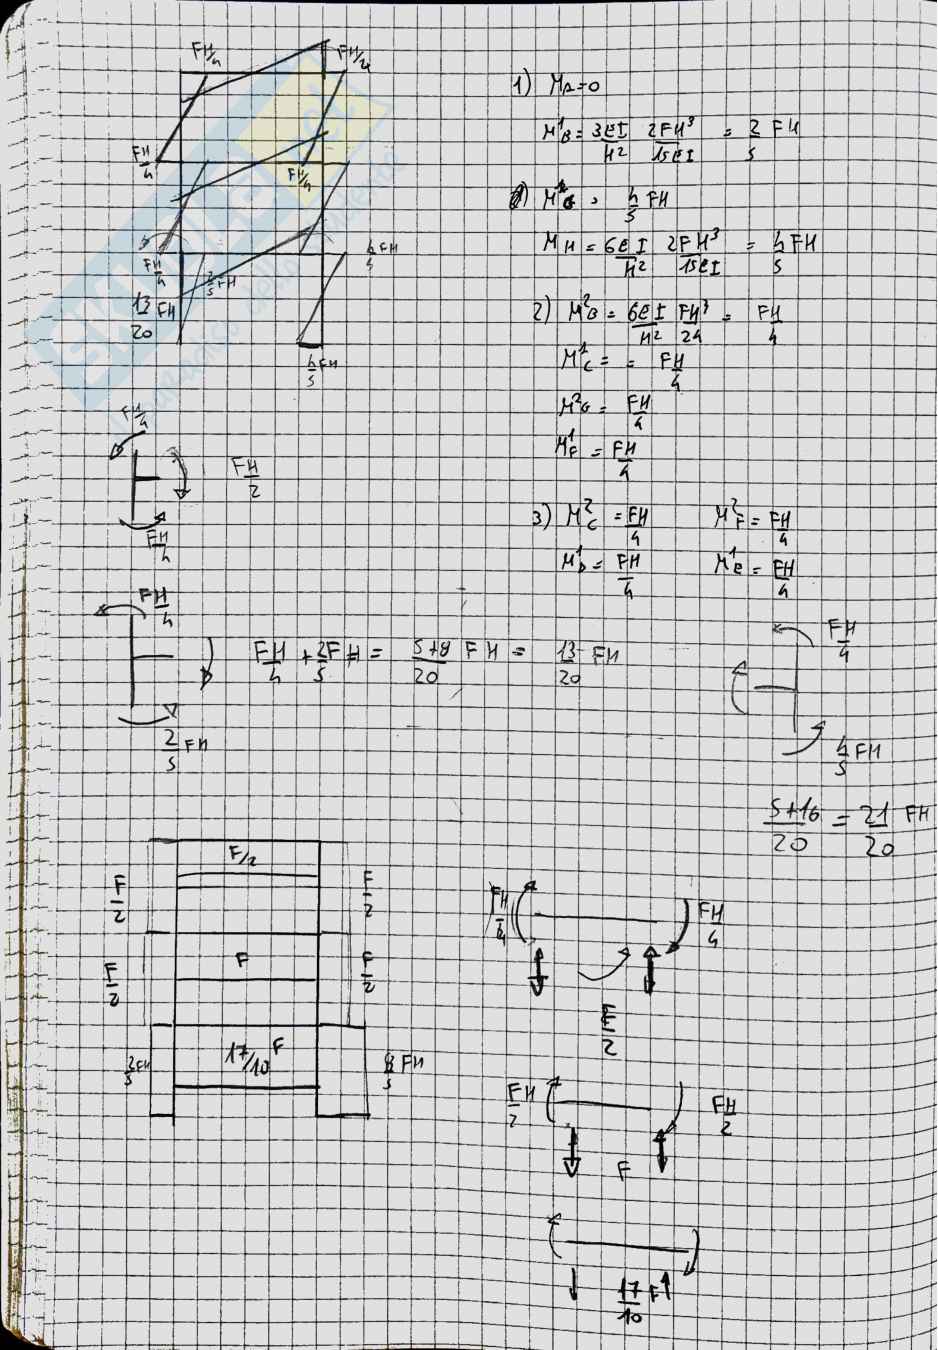 FH/4 FH/4
FH/4 FH/4
FH/4 2/5 FH 4/5 FH
13/20 FH
4/5 FH
1) MA=0
M¹B = 3EI/H² 2FH³/15EI = 2/5 FH
M¹G = 4/5 FH
MH = 6EI/H² 2FH³/15EI = 4/5 FH
2) M²B = 6EI/H² FH³/24 = FH/4
M¹C = = FH/4
M²G = FH/4
M¹F = FH/4
3) M²C = FH/4 M²F = FH/4
M¹D = FH/4 M¹E = FH/4
FH/4
FH/2
FH/4
FH/4
FH/4 + 2FH/5 = 5+8/20 FH = 13/20 FH
2/5 FH
FH/4
4/5 FH
5+16/20 = 21/20 FH
F/2
F/2 F/2
F
F/2 F/2
17/10 F
2/5 FH 8/5 FH
FH/4 FH/4
F/2
FH/2 FH/2
F
17/10 F